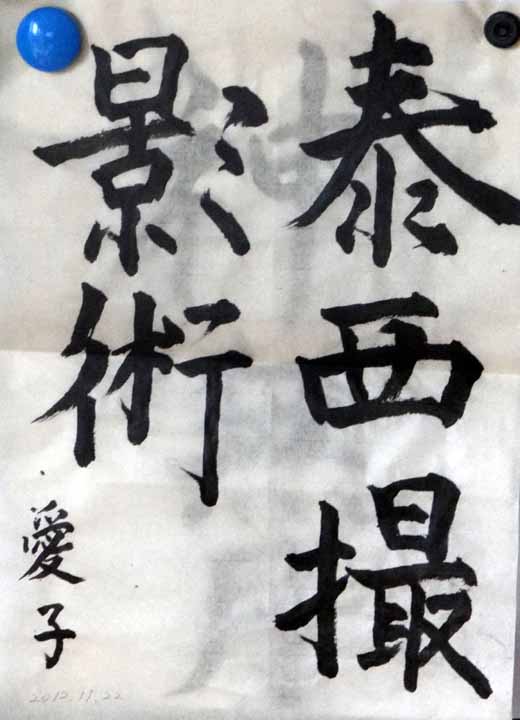 泰西撮
影術
愛子
2012.11.22